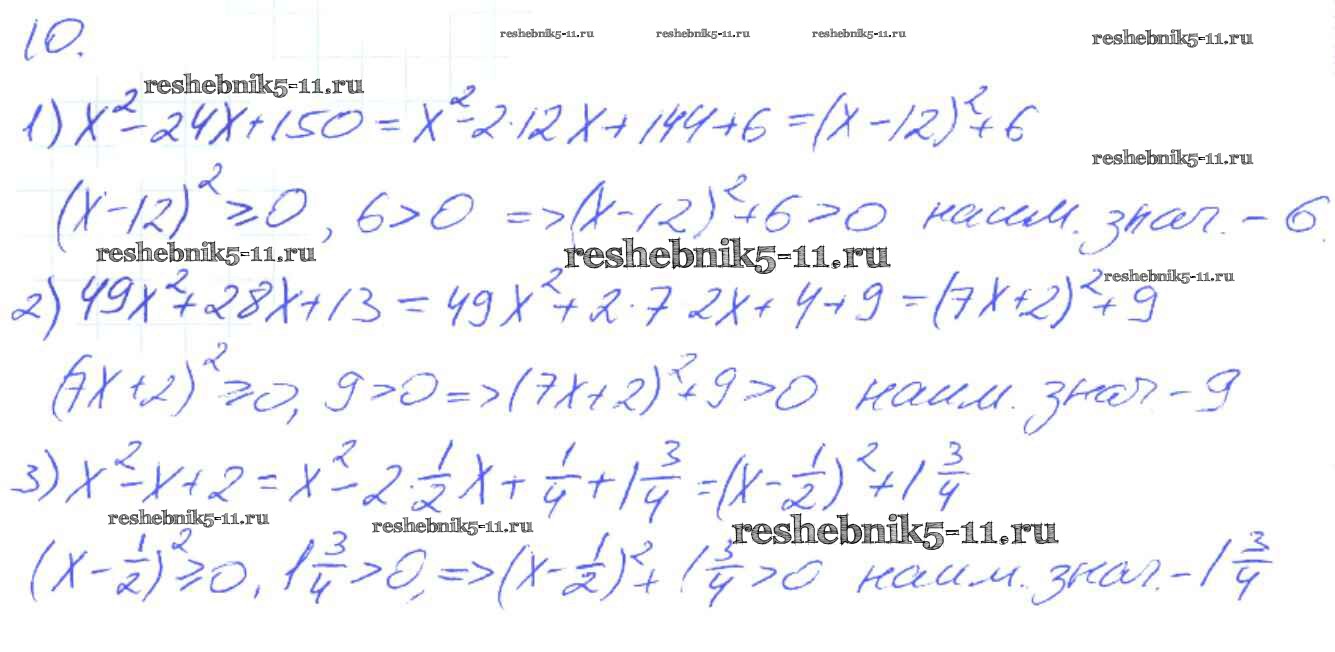 10.
reshebnik5-11.ru reshebnik5-11.ru reshebnik5-11.ru reshebnik5-11.ru
reshebnik5-11.ru
1) x² - 24x + 150 = x² - 2·12x + 144 + 6 = (x - 12)² + 6
reshebnik5-11.ru
(x - 12)² ≥ 0, 6 > 0 => (x - 12)² + 6 > 0 наим. знач. - 6.
reshebnik5-11.ru reshebnik5-11.ru
reshebnik5-11.ru
2) 49x² + 28x + 13 = 49x² + 2·7 2x + 4 + 9 = (7x + 2)² + 9
(7x + 2)² ≥ 0, 9 > 0 => (7x + 2)² + 9 > 0 наим. знач - 9
3) x² - x + 2 = x² - 2·1/2 x + 1/4 + 1 3/4 = (x - 1/2)² + 1 3/4
reshebnik5-11.ru reshebnik5-11.ru reshebnik5-11.ru
(x - 1/2)² ≥ 0, 1 3/4 > 0, => (x - 1/2)² + 1 3/4 > 0 наим. знач. - 1 3/4